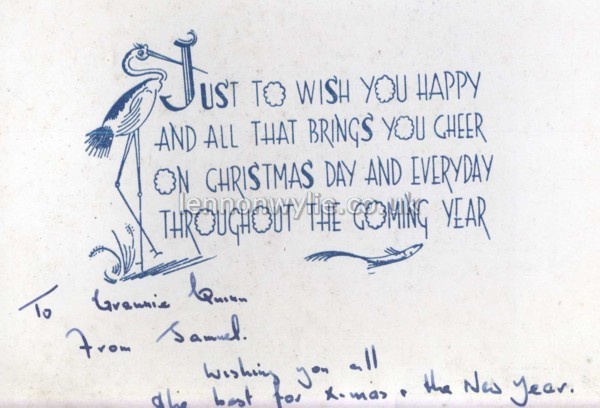 JUST TO WISH YOU HAPPY
AND ALL THAT BRINGS YOU CHEER
ON CHRISTMAS DAY AND EVERYDAY
lennonwylie.co.uk
THROUGHOUT THE COMING YEAR
To Grannie Quinn
From Samuel.
Wishing you all
the best for X-mas & the New Year.